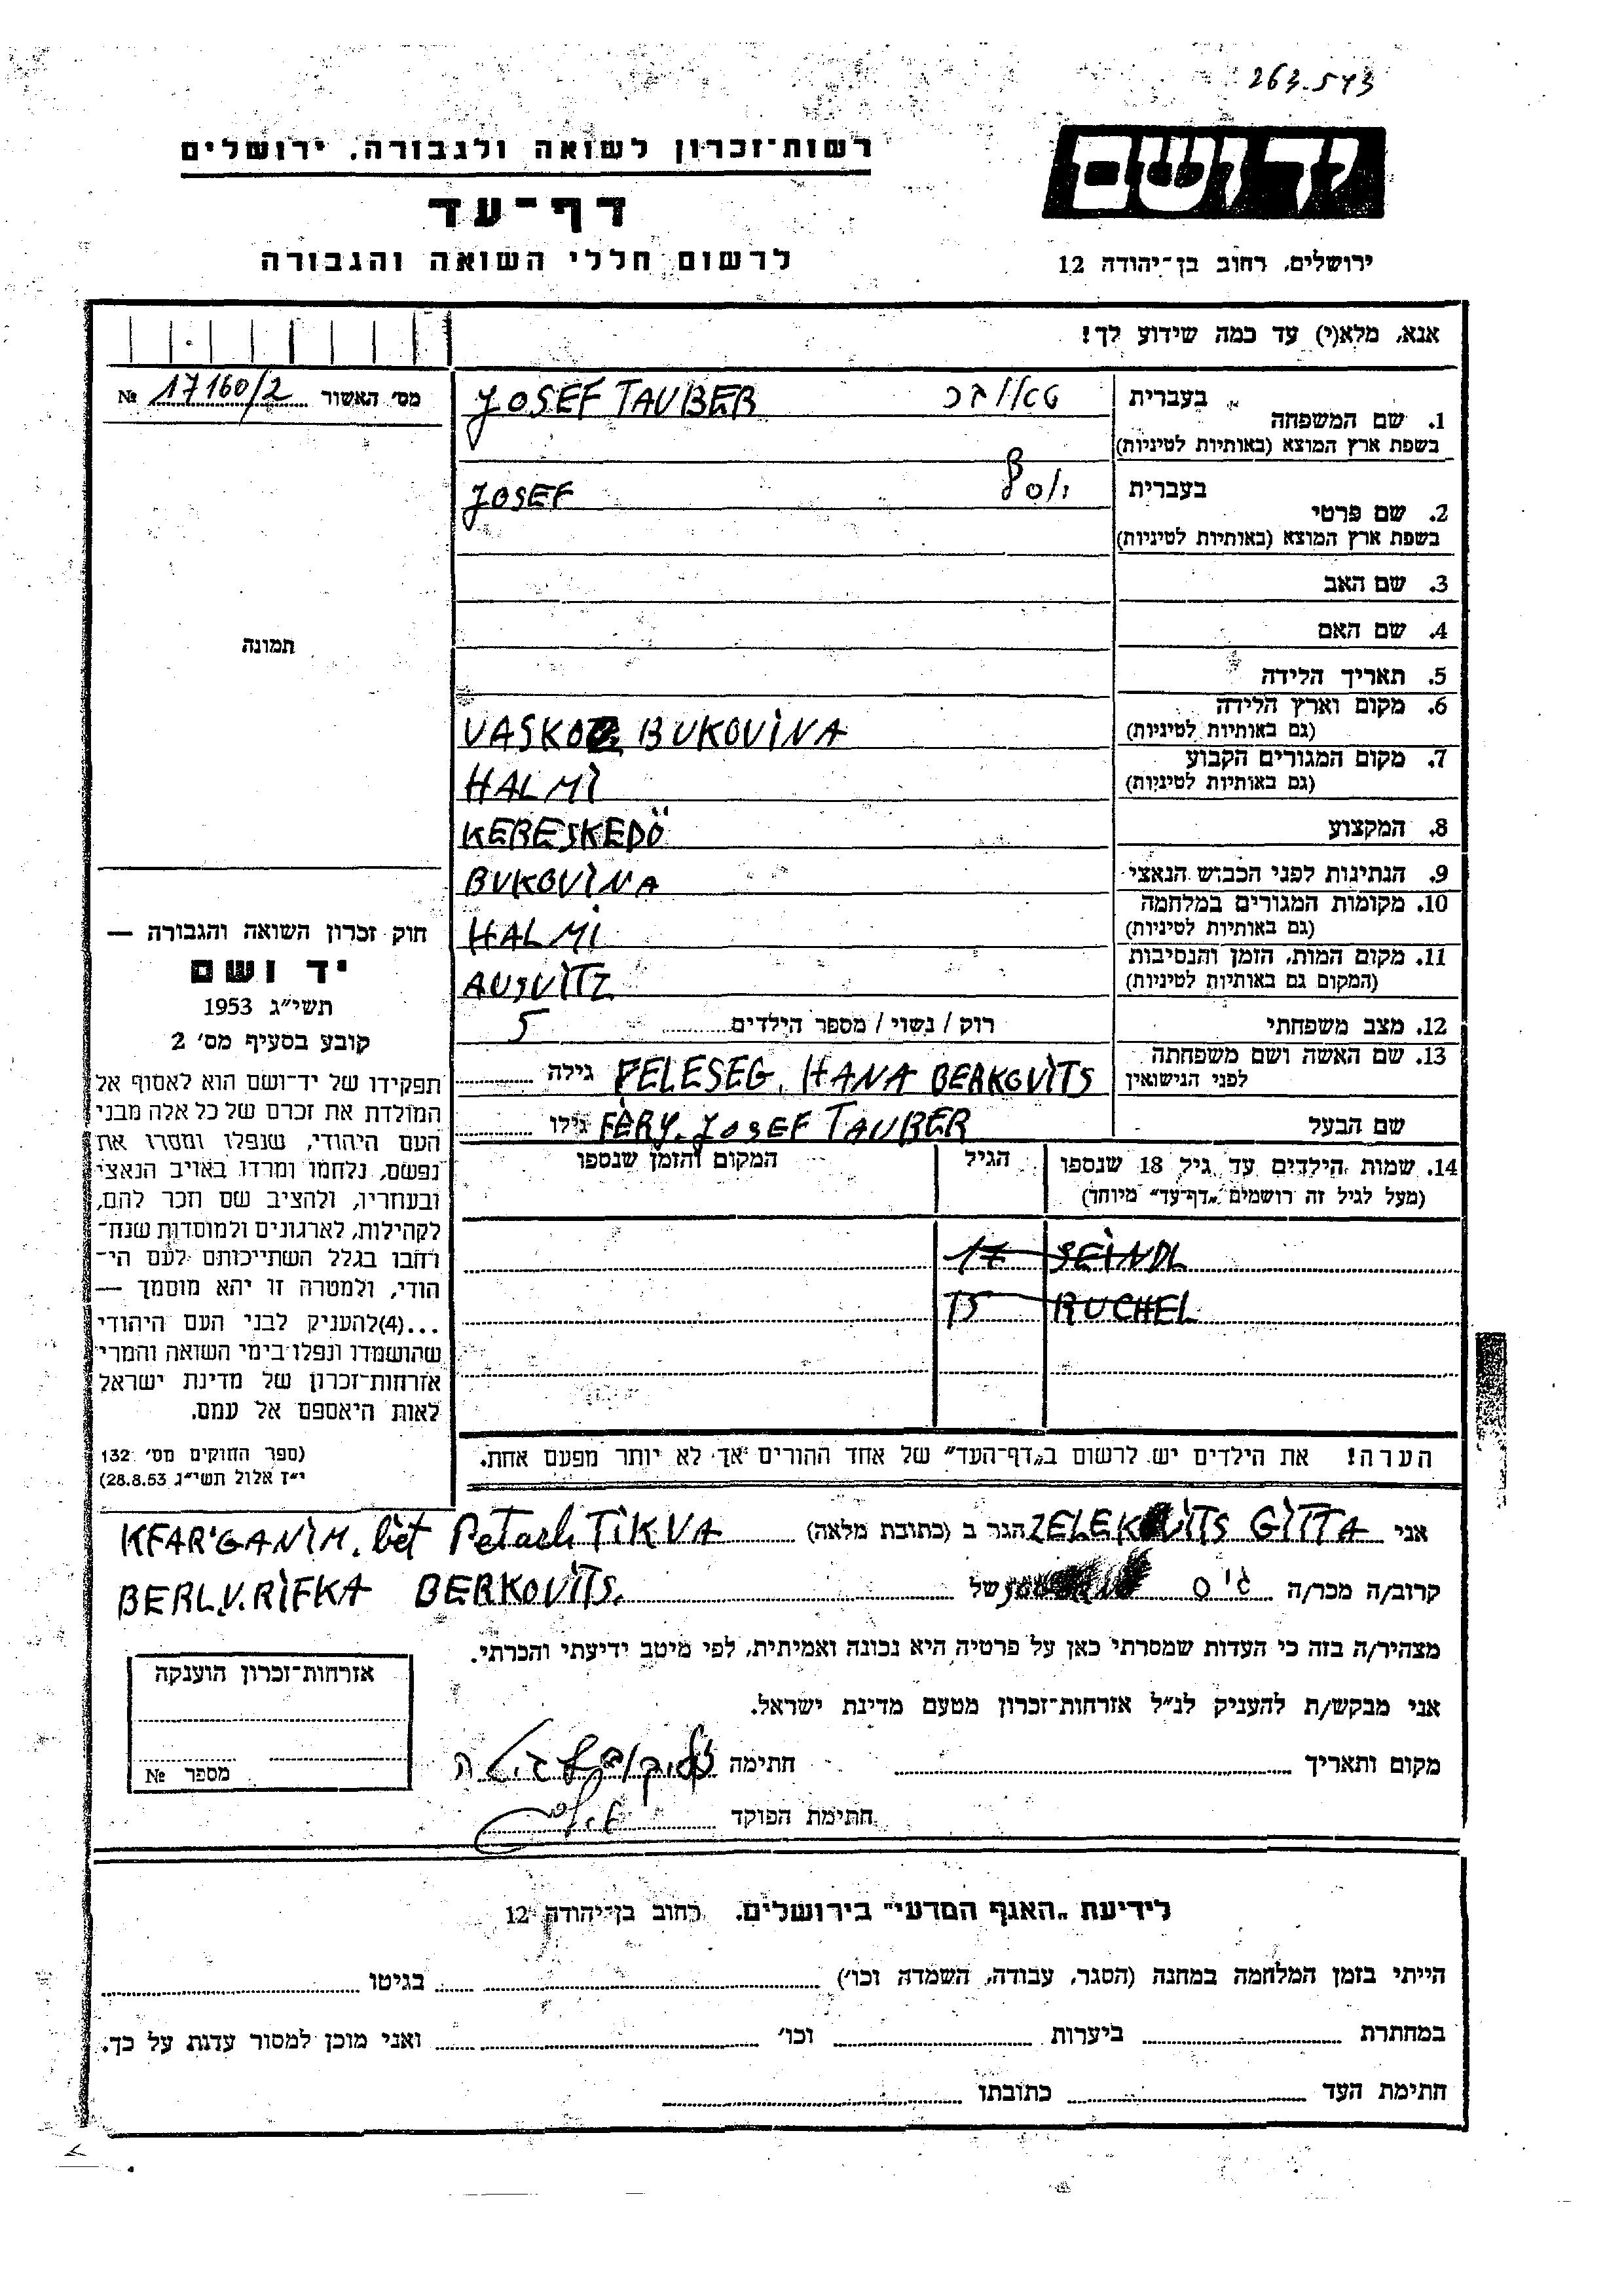 263.543
רשות־זכרון לשואה ולגבורה, ירושלים
יד ושם
דף־עד
לרשום חללי השואה והגבורה
ירושלים, רחוב בן־יהודה 12
אנא, מלא(י) עד כמה שידוע לך!
מס׳ האשור 17160/2 №
1. שם המשפחה בעברית טאובר JOSEF TAUBER
בשפת ארץ המוצא (באותיות לטיניות)
2. שם פרטי בעברית יוסף JOSEF
בשפת ארץ המוצא (באותיות לטיניות)
3. שם האב
4. שם האם
תמונה
5. תאריך הלידה
6. מקום וארץ הלידה BUKOVINA
(גם באותיות לטיניות)
7. מקום המגורים הקבוע HALMI
(גם באותיות לטיניות)
8. המקצוע KERESKEDÖ
9. הנתינות לפני הכבוש הנאצי BUKOVINA
10. מקומות המגורים במלחמה HALMI
(גם באותיות לטיניות)
11. מקום המות, הזמן והנסיבות AUSVITZ
(המקום גם באותיות לטיניות)
12. מצב משפחתי רוק / נשוי / מספר הילדים 5
13. שם האשה ושם משפחתה FELESEG, HANA BERKOVITS גילה
לפני הנישואין
שם הבעל FÈRY. JOSEF TAUBER גילו
14. שמות הילדים עד גיל 18 שנספו הגיל המקום והזמן שנספו
(מעל לגיל זה רושמים „דף־עד״ מיוחד)
SEINDL 17
RUCHEL 15
הערה! את הילדים יש לרשום ב„דף־העד״ של אחד ההורים אך לא יותר מפעם אחת.
חוק זכרון השואה והגבורה —
יד ושם
תשי״ג 1953
קובע בסעיף מס׳ 2
תפקידו של יד־ושם הוא לאסוף אל
המולדת את זכרם של כל אלה מבני
העם היהודי, שנפלו ומסרו את
נפשם, נלחמו ומרדו באויב הנאצי
ובעוזריו, ולהציב שם וזכר להם,
לקהילות, לארגונים ולמוסדות שנח־
רבו בגלל השתייכותם לעם הי־
הודי, ולמטרה זו יהא מוסמך —
...(4)להעניק לבני העם היהודי
שהושמדו ונפלו בימי השואה והמרי
אזרחות־זכרון של מדינת ישראל
לאות היאספם אל עמם.
(ספר החוקים מס׳ 132
י״ז אלול תשי״ג 28.8.53)
אני ZELEKOVITS GITTA הגר ב (כתובת מלאה) KFAR'GANIM. bet Petach TIKVA
קרוב/ה מכר/ה גיס של BERL.V.RIFKA BERKOVITS.
מצהיר/ה בזה כי העדות שמסרתי כאן על פרטיה היא נכונה ואמיתית, לפי מיטב ידיעתי והכרתי.
אני מבקש/ת להעניק לנ״ל אזרחות־זכרון מטעם מדינת ישראל.
מקום ותאריך חתימה
חתימת הפוקד
אזרחות־זכרון הוענקה
מספר №
לידיעת „האגף המדעי״ בירושלים, רחוב בן־יהודה 12
הייתי בזמן המלחמה במחנה (הסגר, עבודה, השמדה וכו׳) בגיטו
במחתרת ביערות וכו׳ ואני מוכן למסור עדות על כך.
חתימת העד כתובתו